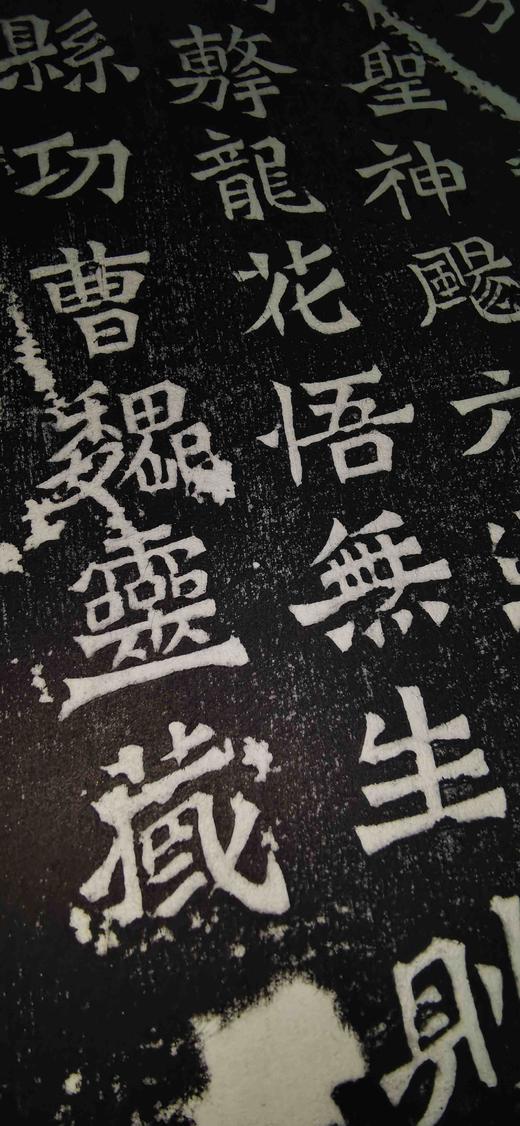 聖神颺六
擊龍花悟無生則
縣功曹魏靈藏